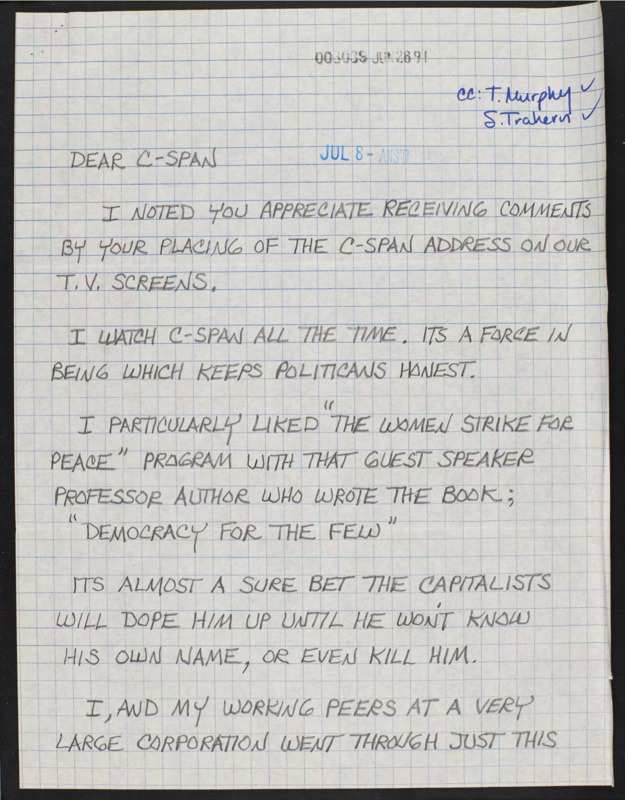 JUN 26 91
cc: T. Murphy ✓
S. Trahern ✓
DEAR C-SPAN
JUL 8 -
I NOTED YOU APPRECIATE RECEIVING COMMENTS
BY YOUR PLACING OF THE C-SPAN ADDRESS ON OUR
T.V. SCREENS.
I WATCH C-SPAN ALL THE TIME. ITS A FORCE IN
BEING WHICH KEEPS POLITICANS HONEST.
I PARTICULARLY LIKED "THE WOMEN STRIKE FOR
PEACE" PROGRAM WITH THAT GUEST SPEAKER
PROFESSOR AUTHOR WHO WROTE THE BOOK;
"DEMOCRACY FOR THE FEW"
ITS ALMOST A SURE BET THE CAPITALISTS
WILL DOPE HIM UP UNTIL HE WON'T KNOW
HIS OWN NAME, OR EVEN KILL HIM.
I, AND MY WORKING PEERS AT A VERY
LARGE CORPORATION WENT THROUGH JUST THIS